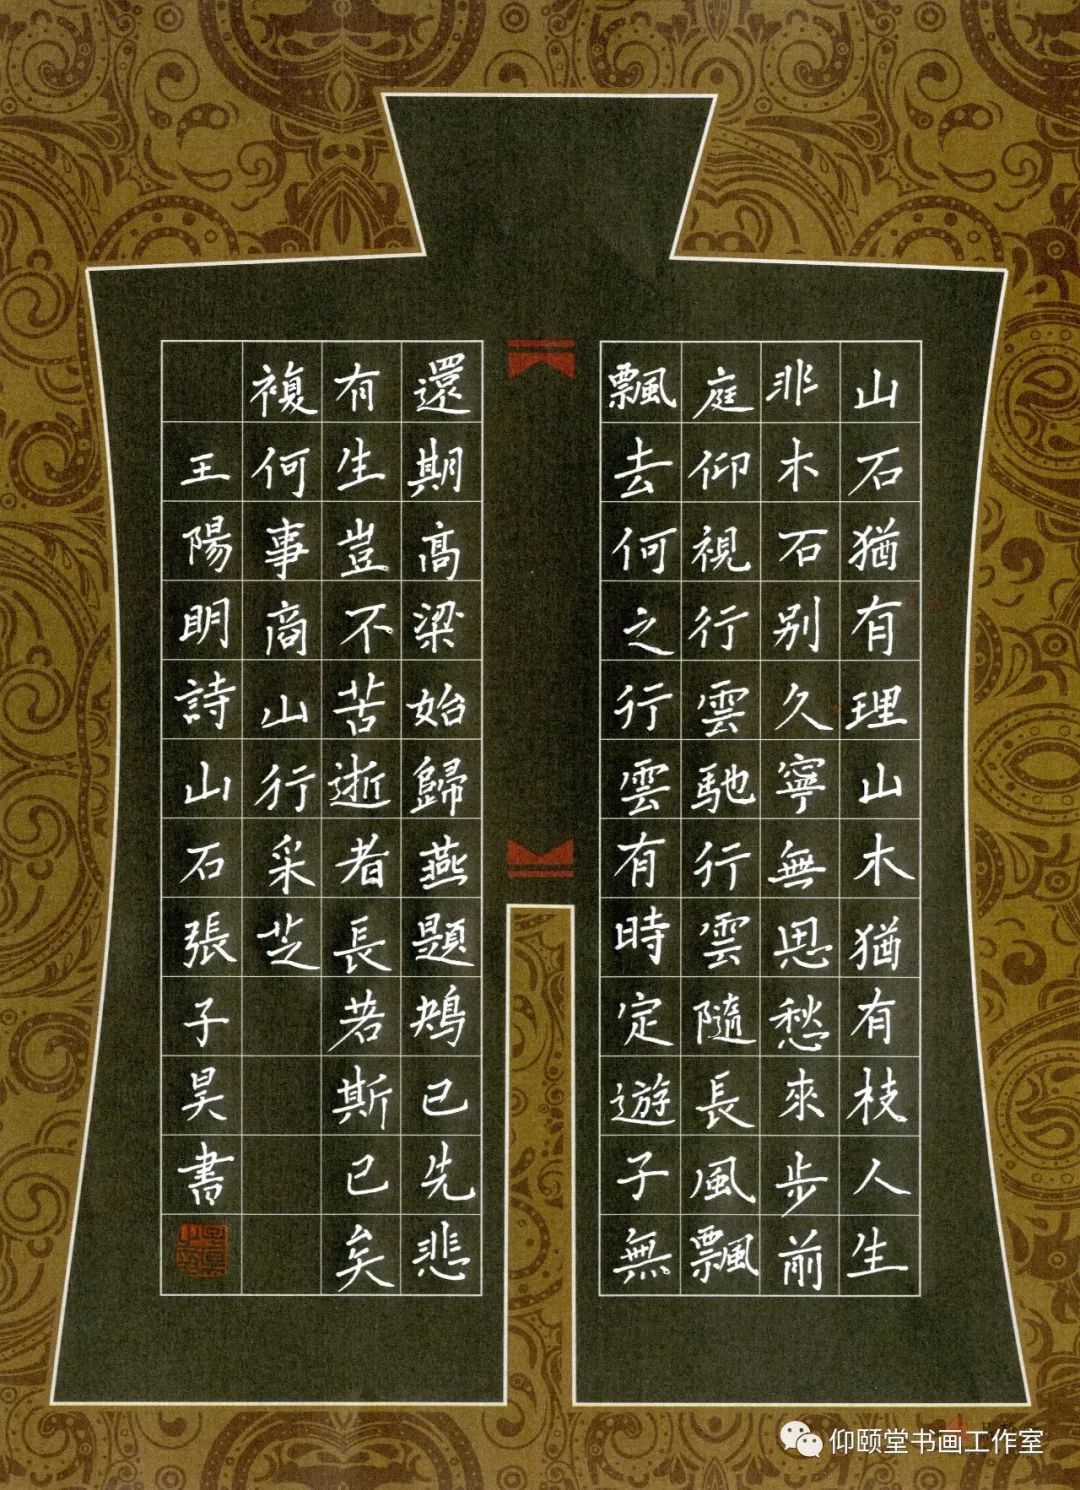 山石猶有理山木猶有枝人生
非木石别久寧無思愁來步前
庭仰視行雲馳行雲隨長風飄
飄去何之行雲有時定遊子無
還期高梁始歸燕題鴂已先悲
有生豈不苦逝者長若斯已矣
複何事商山行采芝
王陽明詩山石張子昊書
仰颐堂书画工作室